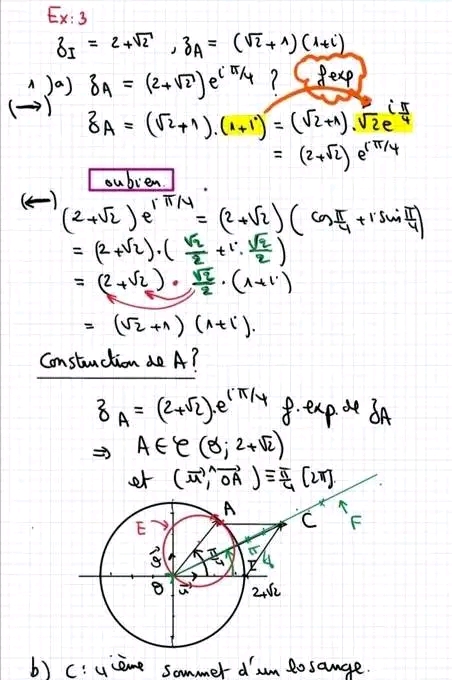 Ex: 3
z_I = 2+√2 , z_A = (√2+1)(1+i)
1)a) z_A = (2+√2)e^{iπ/4} ? f.exp
(→) z_A = (√2+1).(1+i) = (√2+1).√2e^{iπ/4}
= (2+√2) e^{iπ/4}
oubien
(←) (2+√2)e^{iπ/4} = (2+√2)(cos π/4 + i sin π/4)
= (2+√2).(√2/2 + i.√2/2)
= (2+√2) . √2/2 . (1+i)
= (√2+1) (1+i).
Construction de A?
z_A = (2+√2).e^{iπ/4} f.exp.de z_A
⇒ A∈ C(O; 2+√2)
et (u⃗,^OA⃗) ≡ π/4 [2π].
E A C F
v⃗ π/4 π/4 I
O u⃗ 2+√2
b) C: 4ième sommet d'un losange.